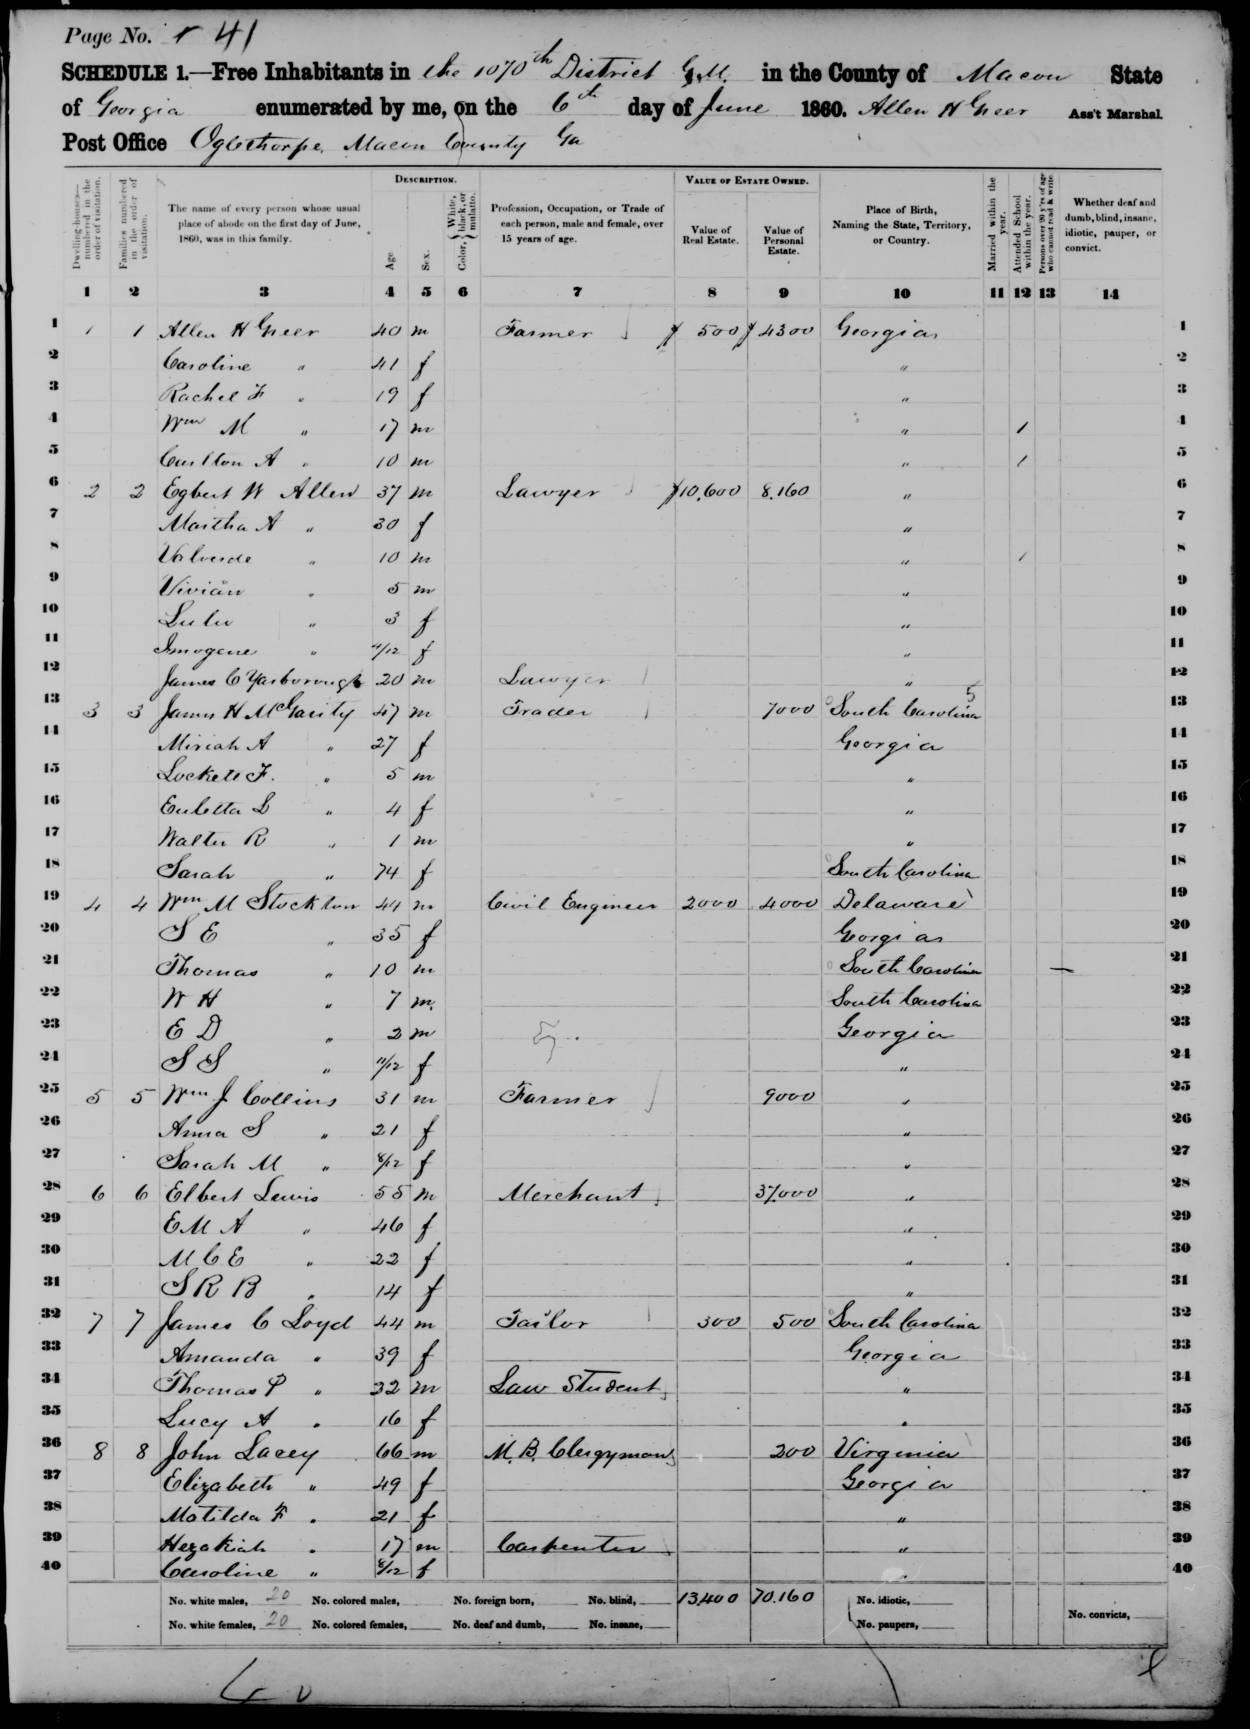 Page No. 41
SCHEDULE 1.—Free Inhabitants in the 1070th District G.M. in the County of Macon State
of Georgia enumerated by me, on the 6th day of June 1860. Allen H Greer Ass't Marshal.
Post Office Oglethorpe, Macon County Ga
DESCRIPTION. VALUE OF ESTATE OWNED.
Dwelling-houses—numbered in the order of visitation.
Families numbered in the order of visitation.
The name of every person whose usual place of abode on the first day of June, 1860, was in this family.
Age.
Sex.
Color, White, black, or mulatto.
Profession, Occupation, or Trade of each person, male and female, over 15 years of age.
Value of Real Estate.
Value of Personal Estate.
Place of Birth, Naming the State, Territory, or Country.
Married within the year.
Attended School within the year.
Persons over 20 y'rs of age who cannot read & write.
Whether deaf and dumb, blind, insane, idiotic, pauper, or convict.
1 2 3 4 5 6 7 8 9 10 11 12 13 14
1 1 1 Allen H Greer 40 m Farmer 500 4300 Georgia 1
2 Caroline " 41 f " 2
3 Rachel F " 19 f " 3
4 Wm M " 17 m " 1 4
5 Carlton A " 10 m " 1 5
6 2 2 Egbert W Allen 37 m Lawyer 10,600 8,160 " 6
7 Martha A " 30 f " 7
8 Valverde " 10 m " 1 8
9 Vivian " 5 m " 9
10 Lulu " 3 f " 10
11 Imogene " 11/12 f " 11
12 James C Yarborough 20 m Lawyer " 12
13 3 3 James H McGarity 47 m Trader 7000 South Carolina 5 13
14 Miriah A " 27 f Georgia 14
15 Lockett F. " 5 m " 15
16 Euletta L " 4 f " 16
17 Walter R " 1 m " 17
18 Sarah " 74 f South Carolina 18
19 4 4 Wm M Stockton 44 m Civil Engineer 2000 4000 Delaware 19
20 S E " 35 f Georgia 20
21 Thomas " 10 m South Carolina 21
22 W H " 7 m South Carolina 22
23 E D " 2 m Georgia 23
24 S S " 11/12 f " 24
25 5 5 Wm J Collins 31 m Farmer 9000 " 25
26 Anna S " 21 f " 26
27 Sarah M " 8/12 f " 27
28 6 6 Elbert Lewis 55 m Merchant 37,000 " 28
29 E M A " 46 f " 29
30 M C E " 22 f " 30
31 S R B " 14 f " 31
32 7 7 James C Loyd 44 m Tailor 300 500 South Carolina 32
33 Amanda " 39 f Georgia 33
34 Thomas P " 32 m Law Student " 34
35 Lucy A " 16 f " 35
36 8 8 John Lacey 66 m M. B. Clergyman 200 Virginia 36
37 Elizabeth " 49 f Georgia 37
38 Matilda F " 21 f " 38
39 Hezakiah " 17 m Carpenter " 39
40 Caroline " 8/12 f " 40
No. white males, 20 No. colored males, No. foreign born, No. blind, 13,400 70,160 No. idiotic,
No. white females, 20 No. colored females, No. deaf and dumb, No. insane, No. paupers, No. convicts,